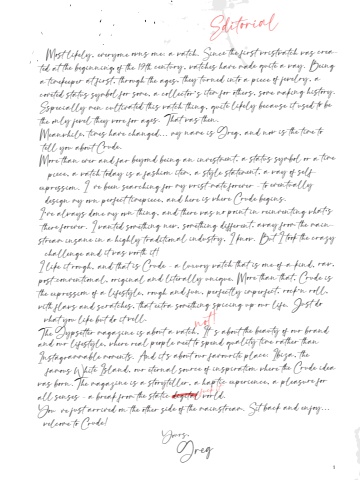 Editorial
Most likely, everyone owns me: a watch. Since the first wristwatch was crea-
ted at the beginning of the 19th century, watches have made quite a way. Being
a timekeeper at first, through the ages, they turned into a piece of jewelry, a
coveted status symbol for some, a collector's item for others, some making history.
Especially men cultivated this watch thing, quite likely because it used to be
the only jewel they wore for ages. That was then.
Meanwhile, times have changed... my name is Greg, and now is the time to
tell you about Crude.
More than ever and far beyond being an investment, a status symbol or a time
piece, a watch today is a fashion item, a style statement, a way of self-
expression. I've been searching for my wrist mate forever - to eventually
design my own perfect timepiece, and here is where Crude begins.
I've always done my own thing, and there was no point in reinventing what's
there forever. I wanted something new, something different, away from the main-
stream insane in a highly traditional industry, I know. But I took the crazy
challenge and it was worth it!
I like it rough, and that is Crude - a luxury watch that is one of a kind, raw,
postconventional, original and literally unique. More than that, Crude is
the expression of a lifestyle, rough and fun, perfectly imperfect, rock'n roll,
with flaws and scratches, that extra something spicing up our life. Just do
what you like but do it well.
not!
The Gypsetter magazine is about a watch. It's about the beauty of our brand
and our lifestyle, where real people meet to spend quality time rather than
Instagrammable moments. And it's about our favourite place: Ibiza, the
famous White Island, our eternal source of inspiration where the Crude idea
was born. The magazine is a storyteller, a haptic experience, a pleasure for
all senses - a break from the static digital world.
You've just arrived on the other side of the mainstream. Sit back and enjoy...
welcome to Crude!
Yours,
Greg
1